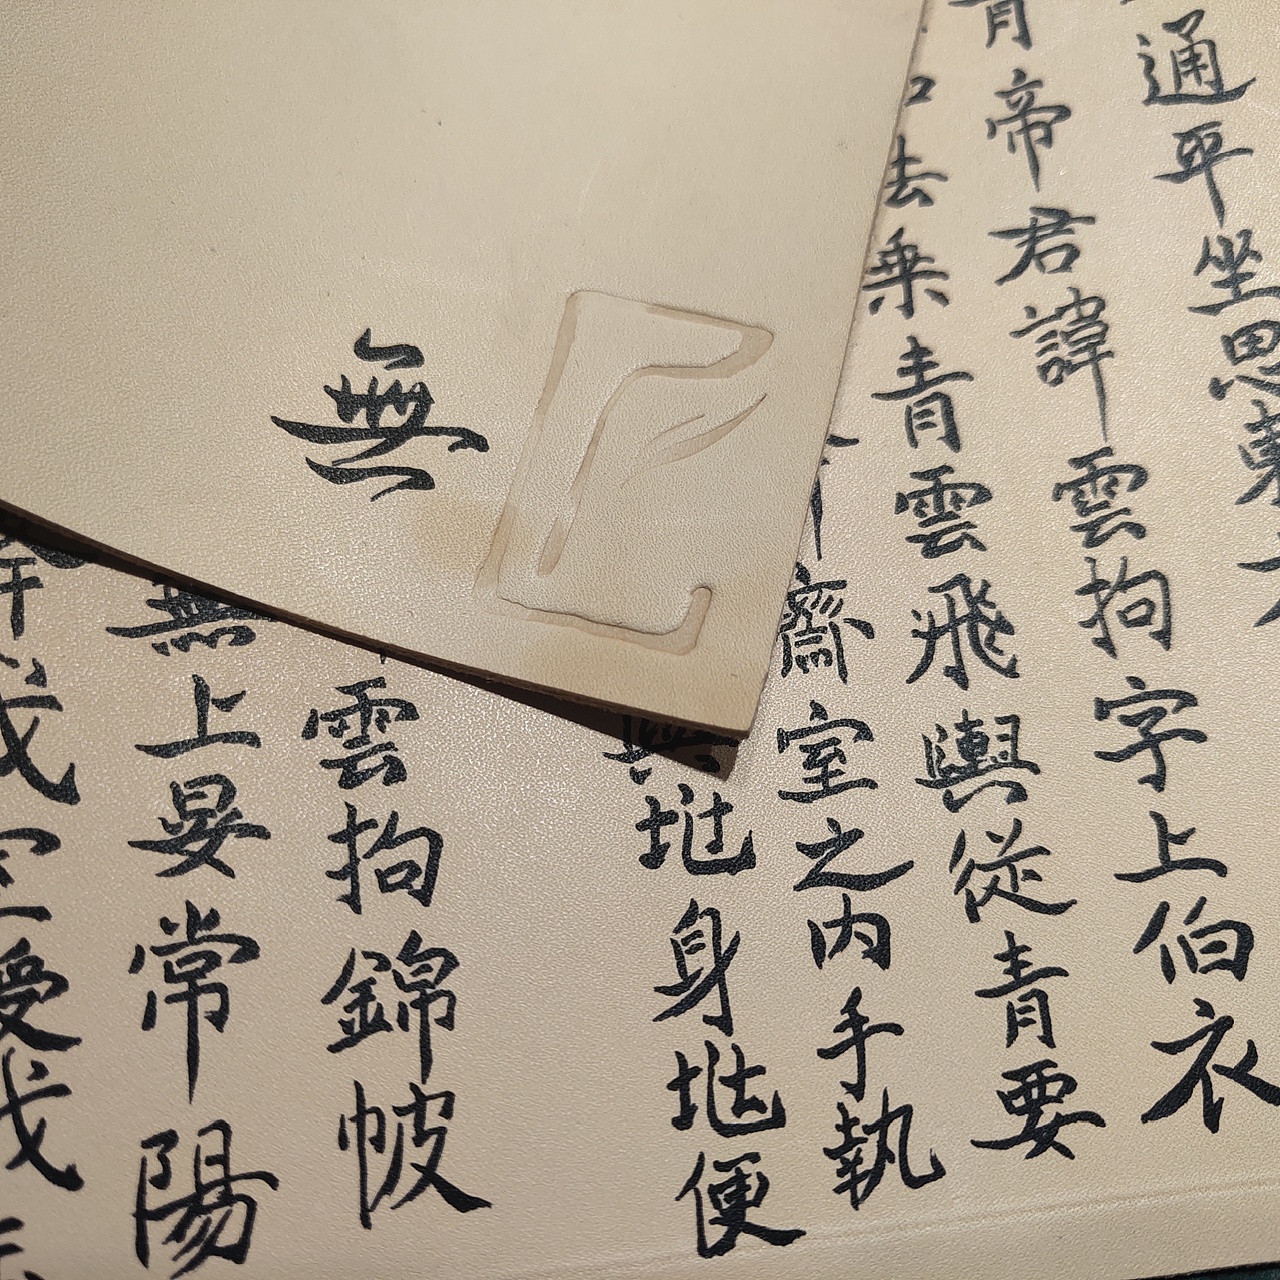 通平坐思
青帝君諱雲拘字上伯衣
去乘青雲飛輿從青要
齋室之內手執
身便
雲拘錦帔
無上晏常陽
受
無